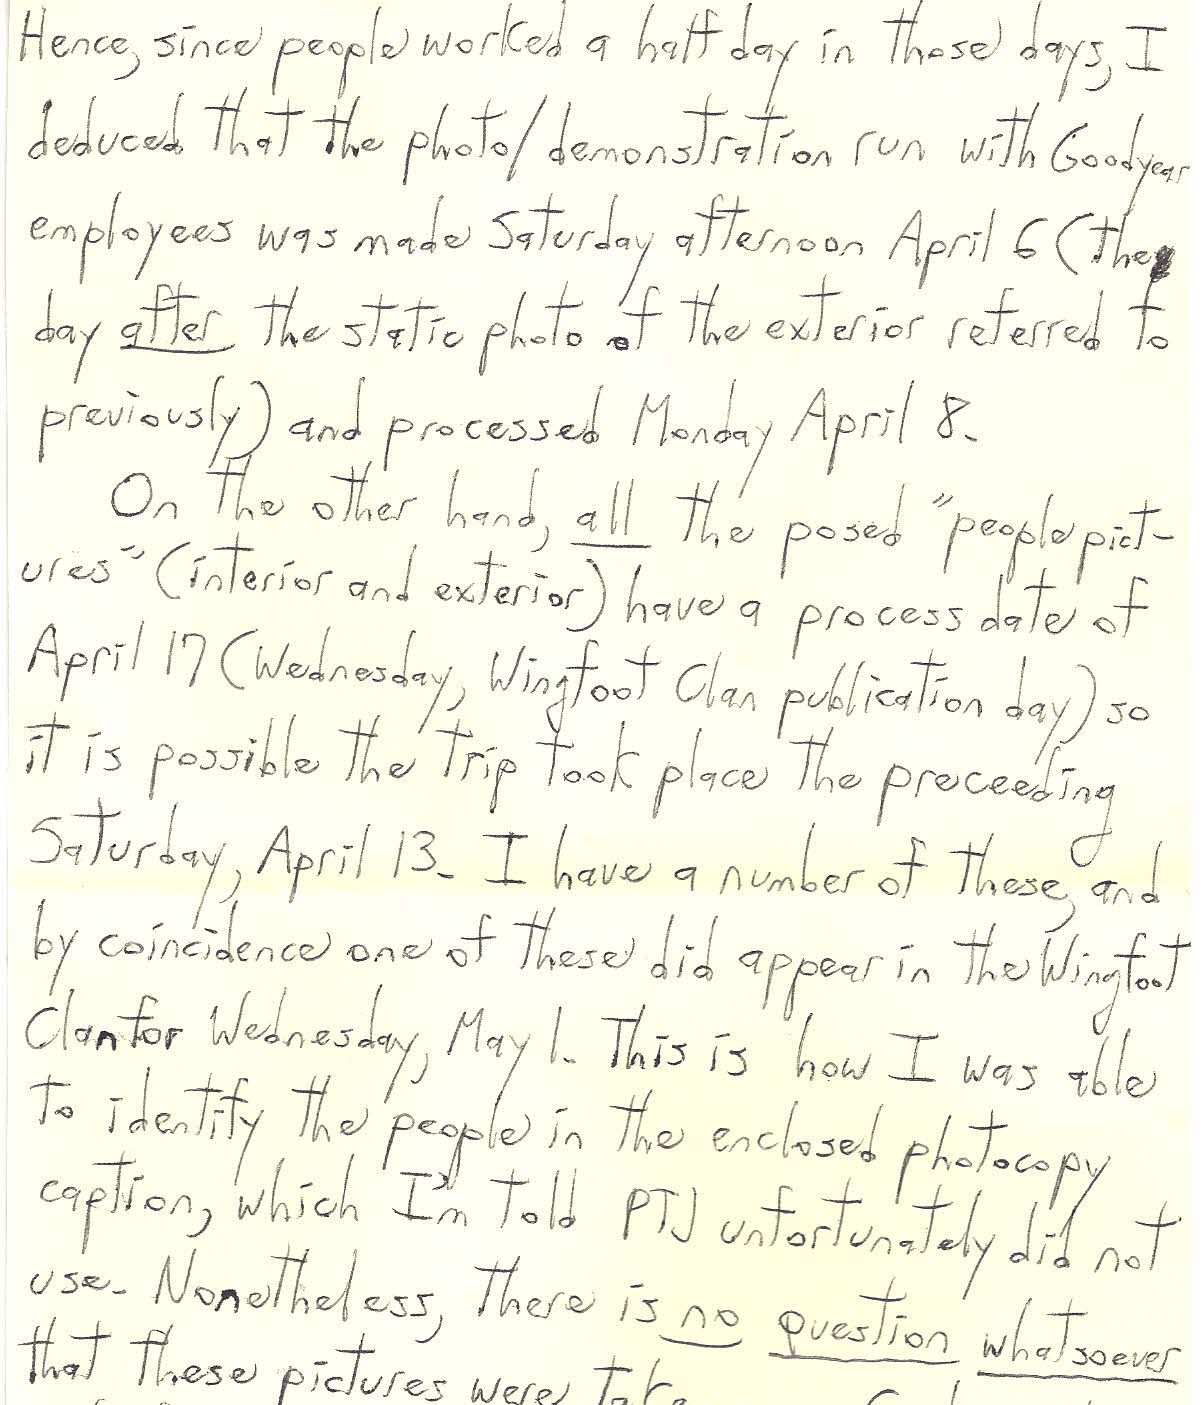 Hence, since people worked a half day in those days, I
deduced that the photo/demonstration run with Goodyear
employees was made Saturday afternoon April 6 (the
day after the static photo of the exterior referred to
previously) and processed Monday April 8.
On the other hand, all the posed "people pict-
ures" (interior and exterior) have a process date of
April 17 (Wednesday, Wingfoot Clan publication day) so
it is possible the trip took place the preceeding
Saturday, April 13. I have a number of these, and
by coincidence one of these did appear in the Wingfoot
Clan for Wednesday, May 1. This is how I was able
to identify the people in the enclosed photocopy
caption, which I'm told PTJ unfortunately did not
use. Nonetheless, there is no question whatsoever
that these pictures were